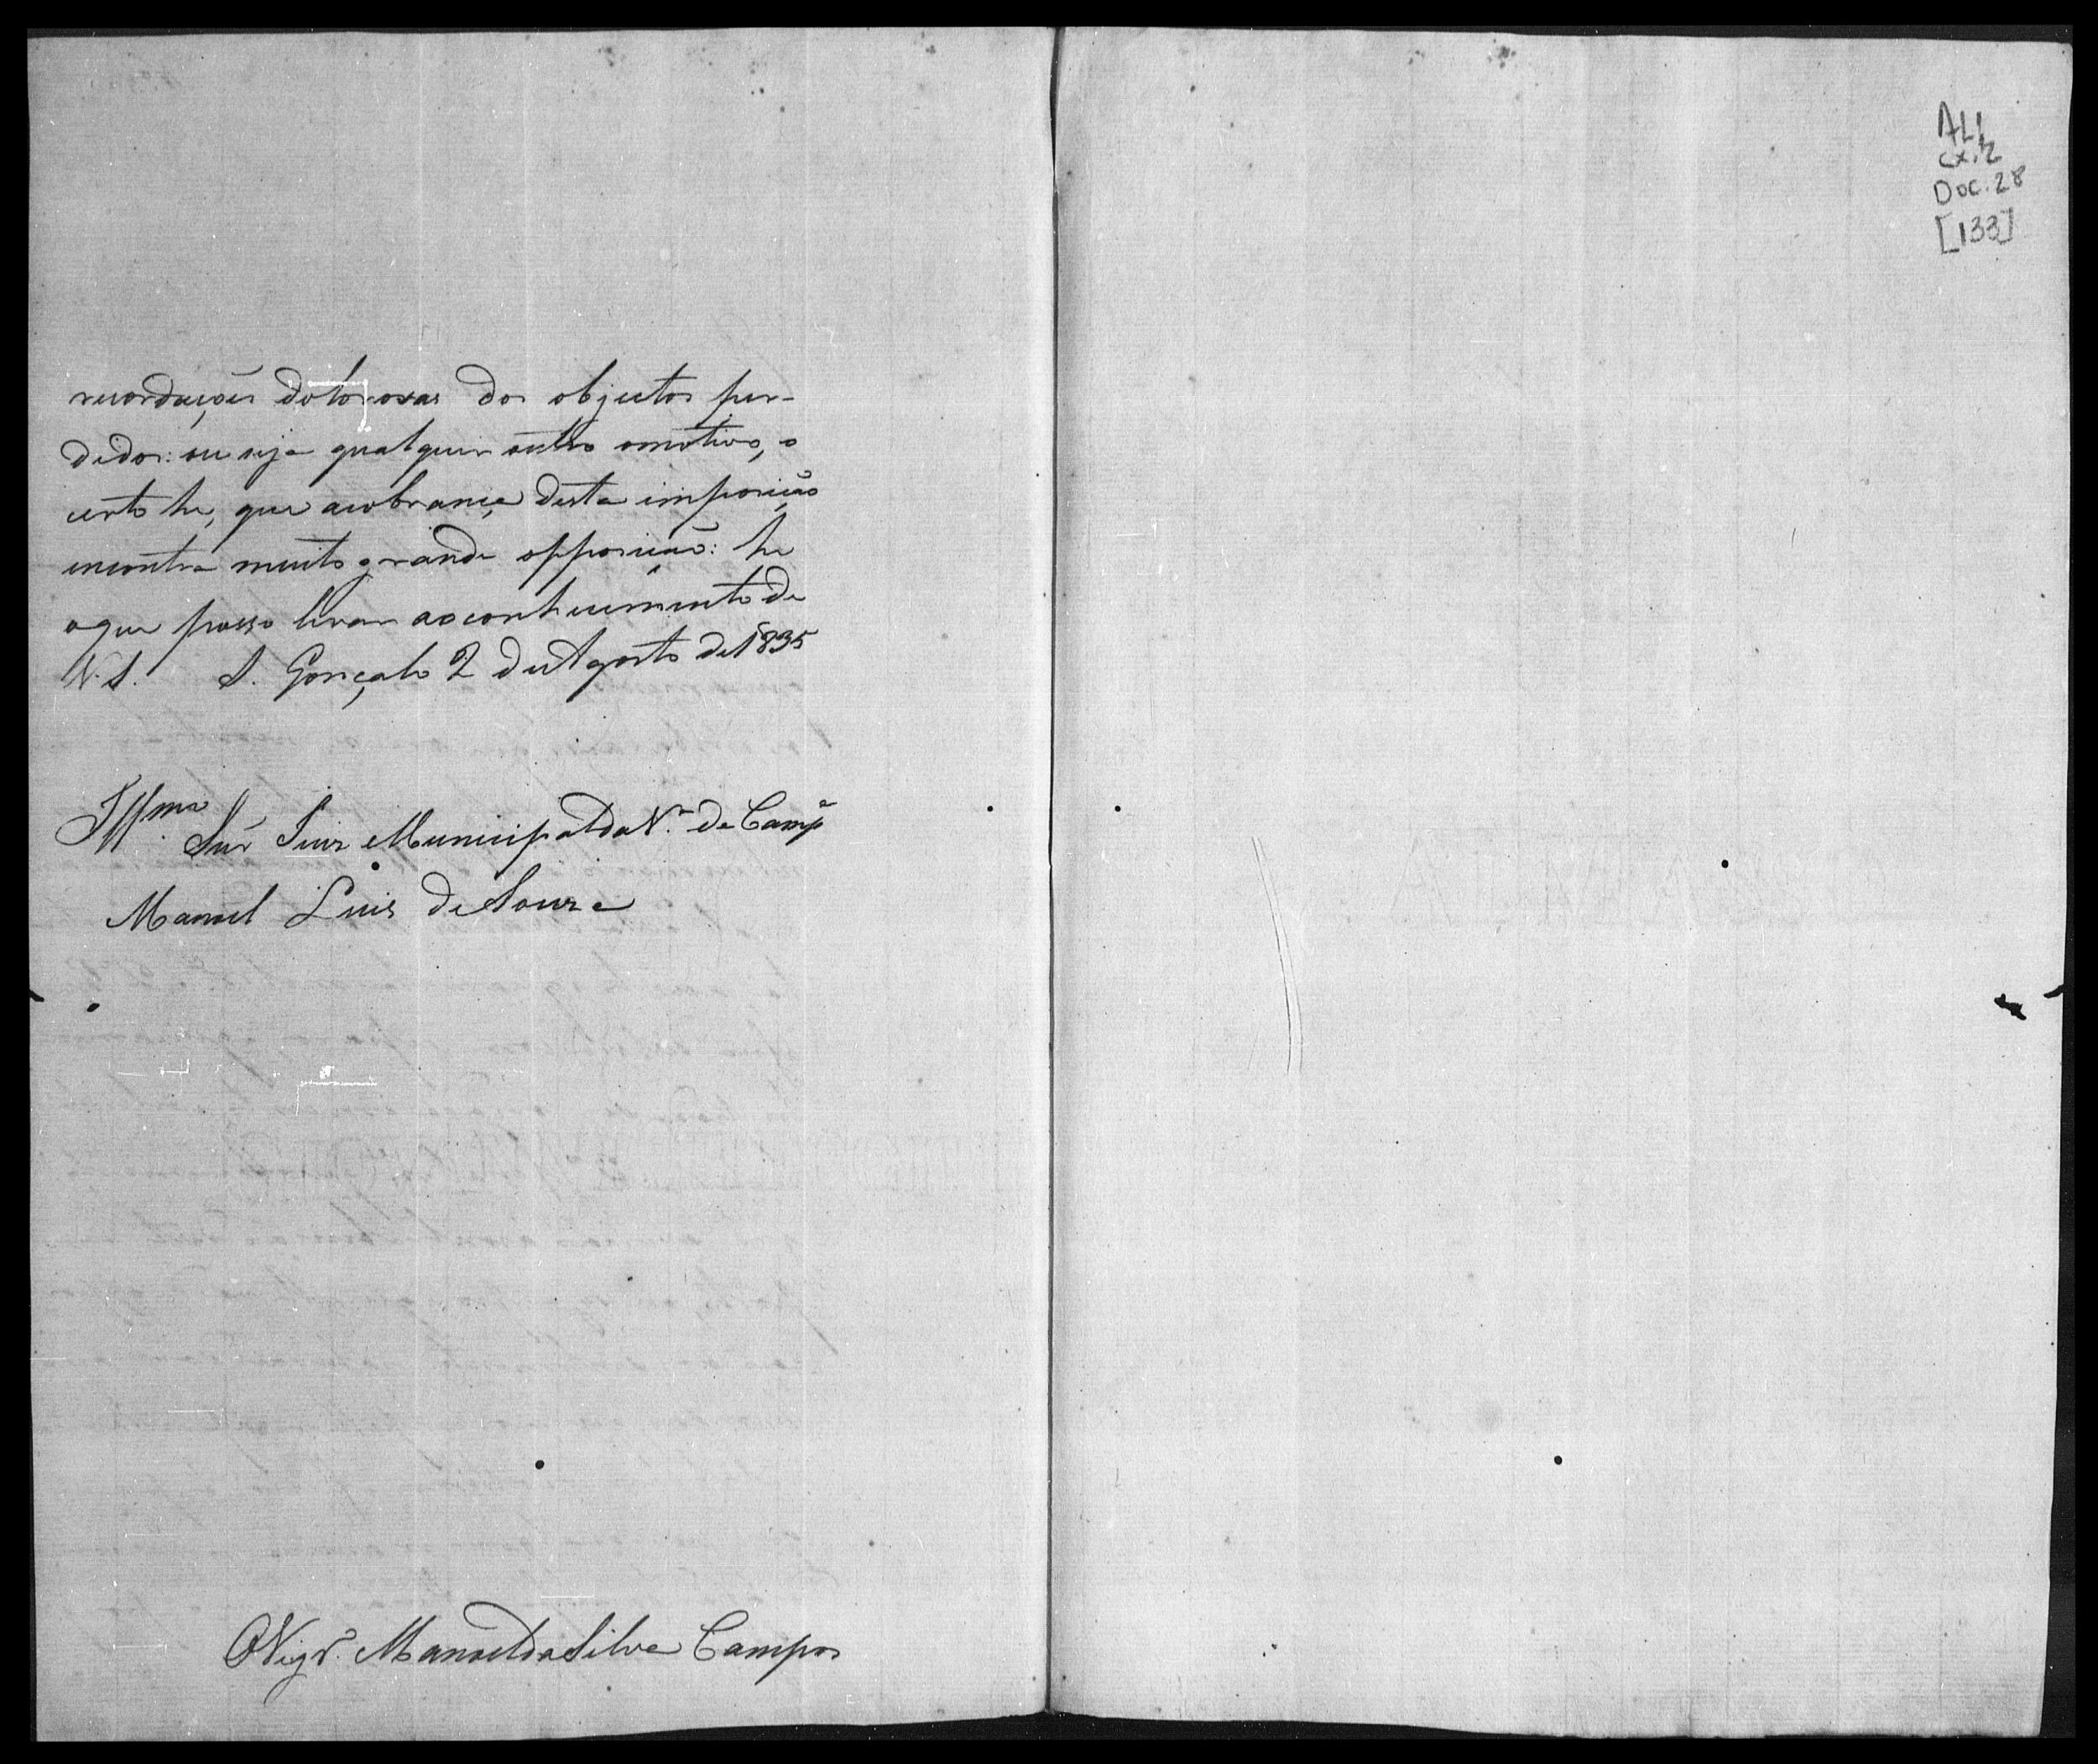 recordaçoẽs dolorosas dos objectos per-
didos: ou seja qualquer outro omotivo, o
certo he, que acobrança desta imposição
encontra muito grande opposição: he
oque posso levar aoconhecimento de
V. S. S. Gonçalo 2 de Agosto de 1835
Illmo. Snr Juiz Municipal da Va. de Campa
Manoel Luis de Souza
O Vigro. Manoel da Silva Campos
ALI
cx.2
Doc. 28
[133]